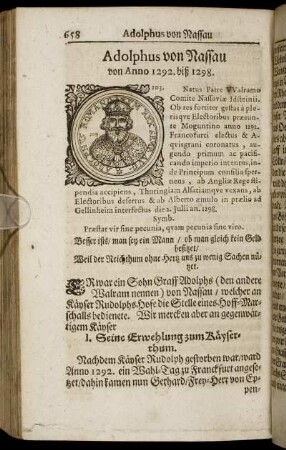 658
Adolphus von Nassau
Adolphus von Nassau
von Anno 1292. biß 1298.
103.
Natus Patre VValramo
Comite Nassoviæ Idsteinii.
Ob res fortiter gestas à ple-
risqve Electoribus præeun-
te Moguntino anno 1292.
Francofurti electus & A-
qvisgrani coronatus, au-
gendo primum ac pacifi-
cando imperio intentus, in-
de Principum consilia sper-
nens, ab Angliæ Rege sti-
pendia accipiens, Thuringiam Alsatiamque vexans, ab
Electoribus desertus & ab Alberto æmulo in prælio ad
Gellinheim interfectus die 2. Julii an. 1298.
Symb.
Præstat vir sine pecunia, quam pecunia sine viro.
Besser ists/ man sey ein Mann / ob man gleich kein Geld
besitzet/
Weil der Reichthum ohne Hertz uns zu wenig Sachen nü-
tzet.
ER war ein Sohn Graff Adolphs (den andere
Walram nennen) von Nassau / welcher an
Käyser Rudolphs Hofe die Stelle eines Hoff-Mar-
schalls bedienete. Wir mercken aber an gegenwär-
tigem Käyser
I. Seine Erwehlung zum Käyser-
thum.
Nachdem Käyser Rudolph gestorben war/ ward
Anno 1292. ein Wahl-Tag zu Franckfurt angese-
tzet/ dahin kamen nun Gerhard/ Frey-Herr von Ep-
pen-